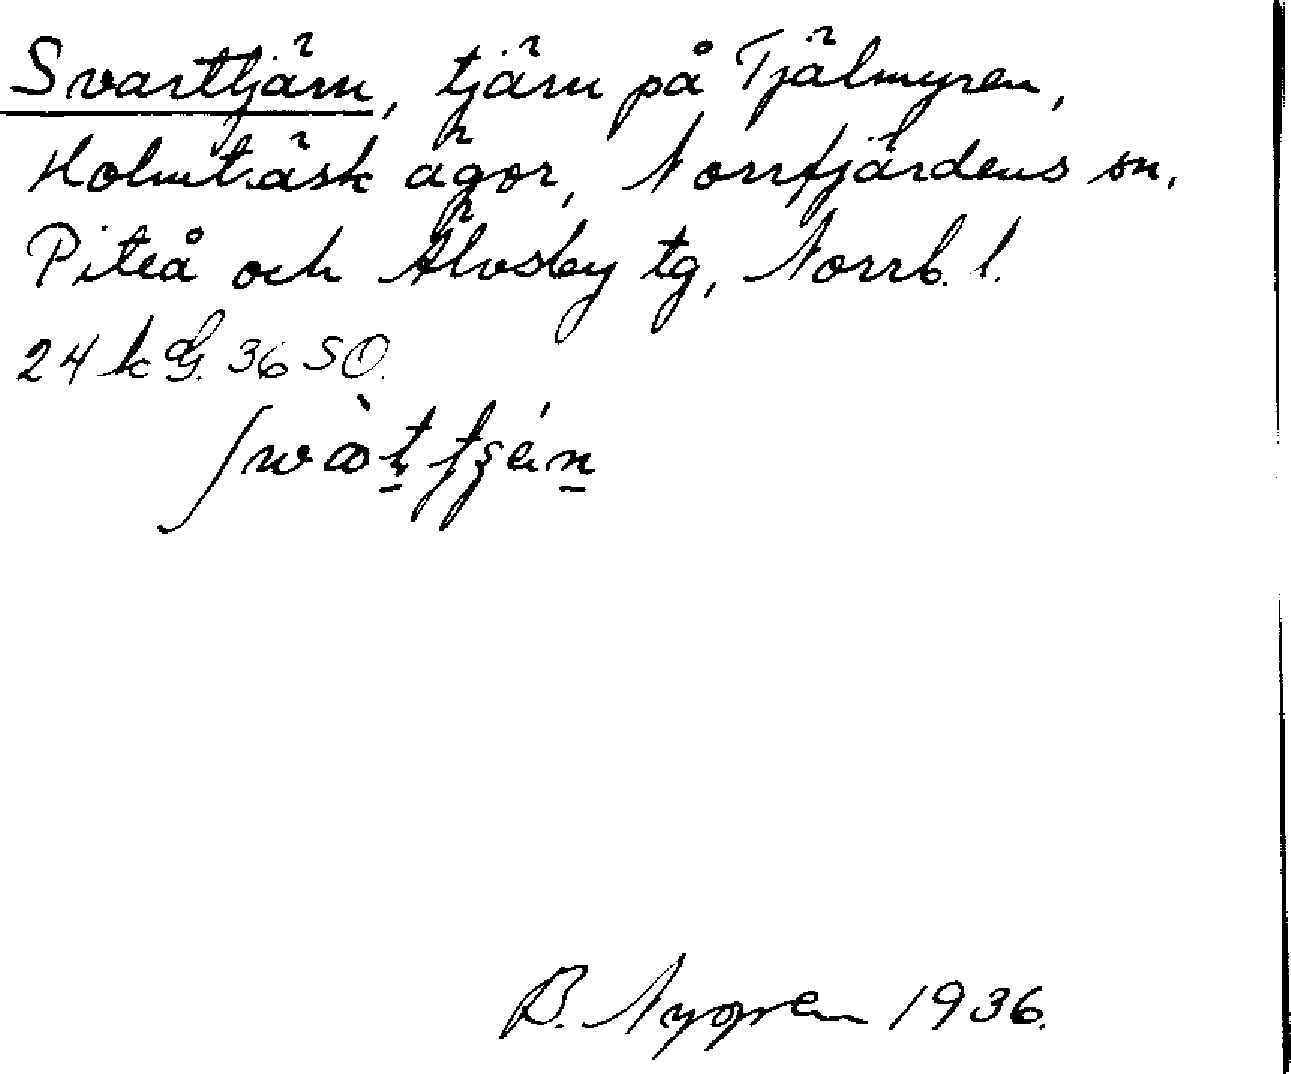 Svarttjärn, tjärn på Tjälmyren,
Holmträsk ägor, Norrfjärdens sn,
Piteå och Älvsby tg, Norrb. l.
24 k 36 SO.
B. Nygren 1936.